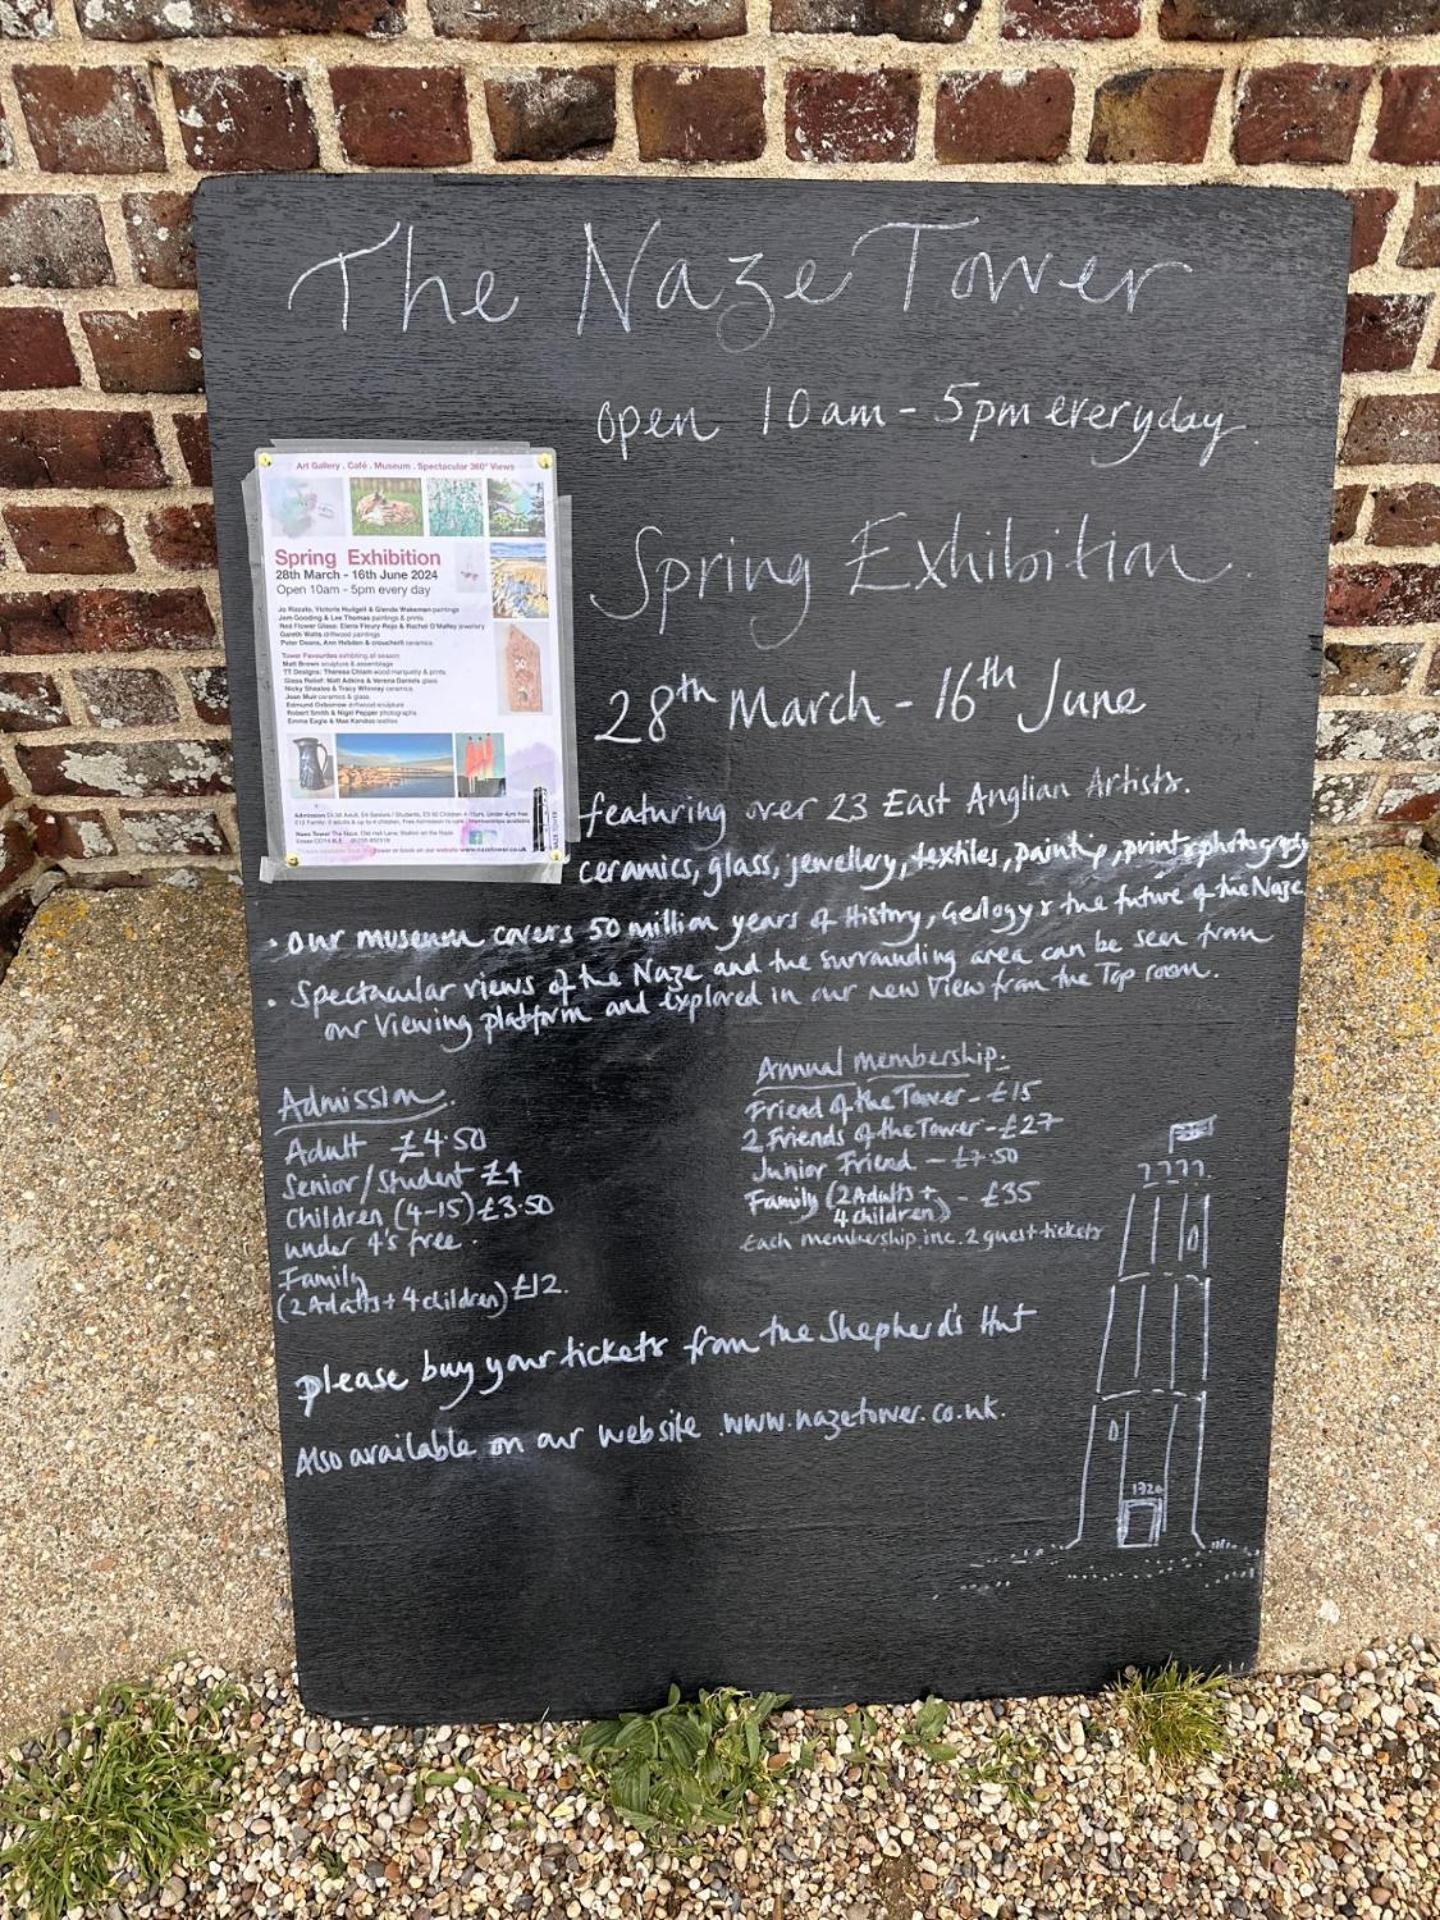 The Naze Tower
open 10am - 5pm everyday.
Art Gallery . Café . Museum . Spectacular 360° Views
Spring Exhibition
28th March - 16th June 2024
Open 10am - 5pm every day
Jo Rizzato, Victoria Hudgell & Glenda Wakeman paintings
Jem Gooding & Lee Thomas paintings & prints
Red Flower Glass: Elena Fleury-Rojo & Rachel O'Malley jewellery
Gareth Watts driftwood paintings
Peter Deans, Ann Hebden & ceramics
Tower Favourites exhibiting all season
Matt Brown sculpture & assemblage
TT Designs: Theresa Chiam wood marquetry & prints
Glass Relief: Matt Adkins & Verena Daniels glass
Nicky Sheales & Tracy Whinney ceramics
Joan Muir ceramics & glass
Edmund Osborrow driftwood sculpture
Robert Smith & Nigel Pepper photographs
Emma Eagle & Mae Kandoo textiles
Admission £4.50 Adult, £4 Seniors / Students, £3.50 Children 4-15yrs, Under 4yrs free
£12 Family: 2 adults & up to 4 children,
Naze Tower The Naze, Old Hall Lane, Walton on the Naze
Essex CO14 8LE
or book on our website www.nazetower.co.uk
NAZE TOWER
Spring Exhibition.
28th March - 16th June
featuring over 23 East Anglian Artists.
ceramics, glass, jewellery, textiles, painting, print & photography
• Our museum covers 50 million years of History, Geology & the future of the Naze
• Spectacular views of the Naze and the surrounding area can be seen from
our Viewing platform and explored in our new View from the Top room.
Admission.
Adult £4.50
Senior/Student £4
Children (4-15) £3.50
under 4's free.
Family
(2 Adults + 4 children) £12.
Annual Membership:
Friend of the Tower - £15
2 Friends of the Tower - £27
Junior Friend - £7.50
Family (2 Adults + 4 Children) - £35
Each membership inc. 2 guest tickets
please buy your tickets from the Shepherd's Hut
Also available on our website .www.nazetower.co.uk.
1720